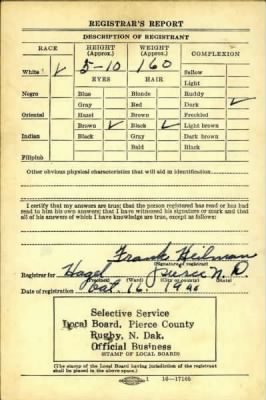 REGISTRAR'S REPORT
DESCRIPTION OF REGISTRANT
RACE HEIGHT (Approx.) WEIGHT (Approx.) COMPLEXION
White ✓ 5-10 160 Sallow
EYES HAIR Light
Negro Blue Blonde Ruddy
Gray Red Dark ✓
Oriental Hazel Brown Freckled
Brown ✓ Black ✓ Light brown
Indian Black Gray Dark brown
Bald Black
Filipino
Other obvious physical characteristics that will aid in identification
I certify that my answers are true; that the person registered has read or has had
read to him his own answers; that I have witnessed his signature or mark and that
all of his answers of which I have knowledge are true, except as follows:
Frank Heilman
(Signature of registrar)
Registrar for Hagel Pierce N.D.
(Precinct) (Ward) (City or county) (State)
Date of registration Oct. 16 1940
Selective Service
Local Board, Pierce County
Rugby, N. Dak.
Official Business
(STAMP OF LOCAL BOARD)
(The stamp of the Local Board having jurisdiction of the registrant
shall be placed in the above space.)
16-17105